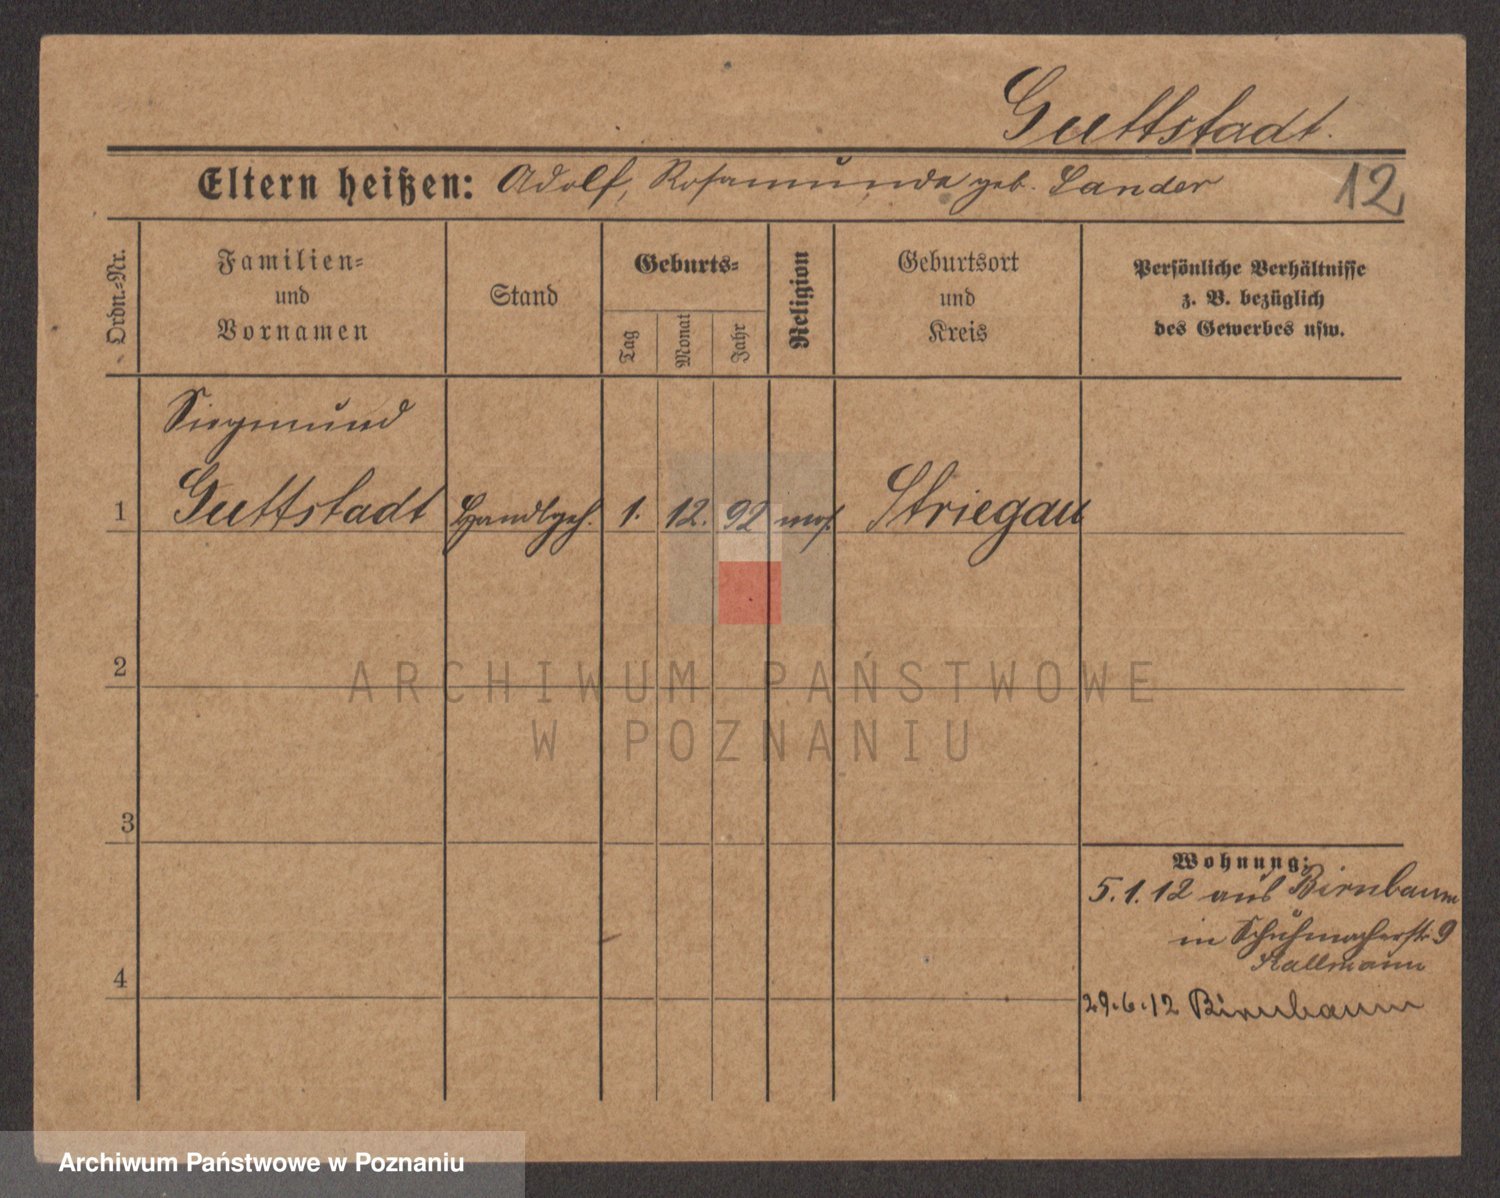 Guttstadt.
Eltern heißen: Adolf, Rosamunde geb. Lander
12
Ordn.-Nr.
Familien- und Vornamen
Stand
Geburts-
Tag
Monat
Jahr
Religion
Geburtsort und Kreis
Persönliche Verhältnisse z. B. bezüglich des Gewerbes usw.
Siegmund
1 Guttstadt Handlgeh. 1. 12. 92 mos. Striegau
2
ARCHIWUM PAŃSTWOWE
W POZNANIU
3
Wohnung:
5.1.12 aus Birnbaum
in Schuhmacherstr. 9
Kallmann
4
29.6.12 Birnbaum
Archiwum Państwowe w Poznaniu